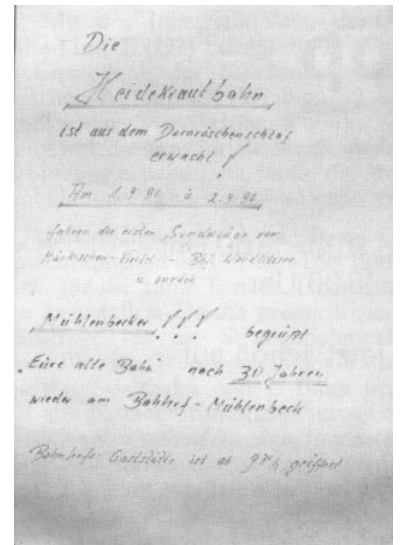 Die
Heidekrautbahn
ist aus dem Dornröschenschlaf
erwacht !
Am 1.9.90 u 2.9.90
fahren die ersten Sonderzüge vom
Märkischen-Viertel - Bhf. Wandlitzsee
u. zurück
Mühlenbecker !!! begrüßt
"Eure alte Bahn" nach 30 Jahren
wieder am Bahhof-Mühlenbeck
Bahnhofs-Gaststätte ist ab geöffnet